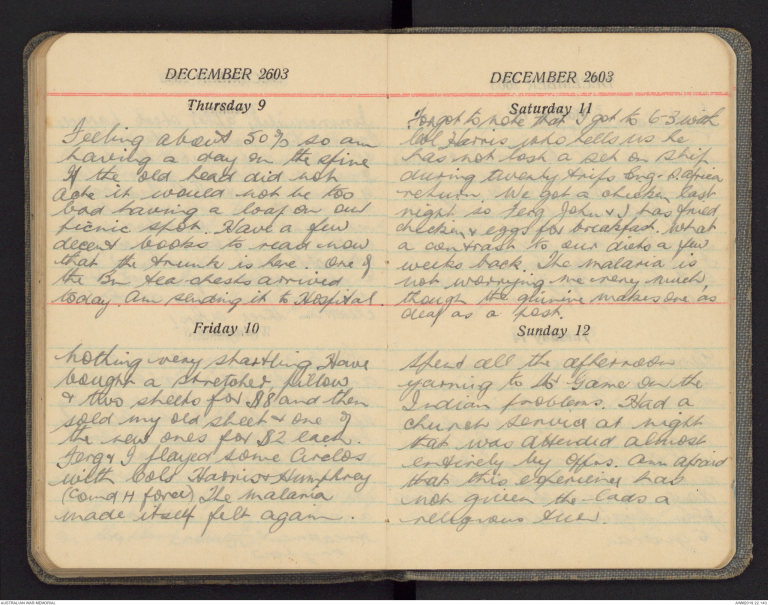 DECEMBER 2603
Thursday 9
Feeling about 50% so am
having a day on the spine
If the old head did not
ache it would not be too
bad having a loaf on our
picnic spot. Have a few
decent books to read now
that the trunk is here. One of
the Bn tea chests arrived
today. Am sending it to Hospital
Friday 10
Nothing very startling Have
bought a stretcher, pillow
& two sheets for $8 and then
sold my old sheet & one of
the new ones for $2 each.
Ferg & I played some Circlos
with Cols Harris & Humphrey
(Comd H force) The malaria
made itself felt again.
DECEMBER 2603
Saturday 11
Forgot to note that I got to 6-3 with
Col Harris who tells us he
has not lost a set on ship
during twenty trips Eng- Africa
return. We got a chicken last
night so Ferg John & I had fried
chicken & eggs for breakfast. What
a contrast to our diets a few
weeks back. The malaria is
not worrying me very much,
though the quinine makes one as
deaf as a post.
Sunday 12
Spent all the afternoon
yarning to Game on the
Indian problems. Had a
church service at night
that was attended almost
entirely by Offrs. Am afraid
that this experience has
not given the lads a
religious
AUSTRALIAN WAR MEMORIAL